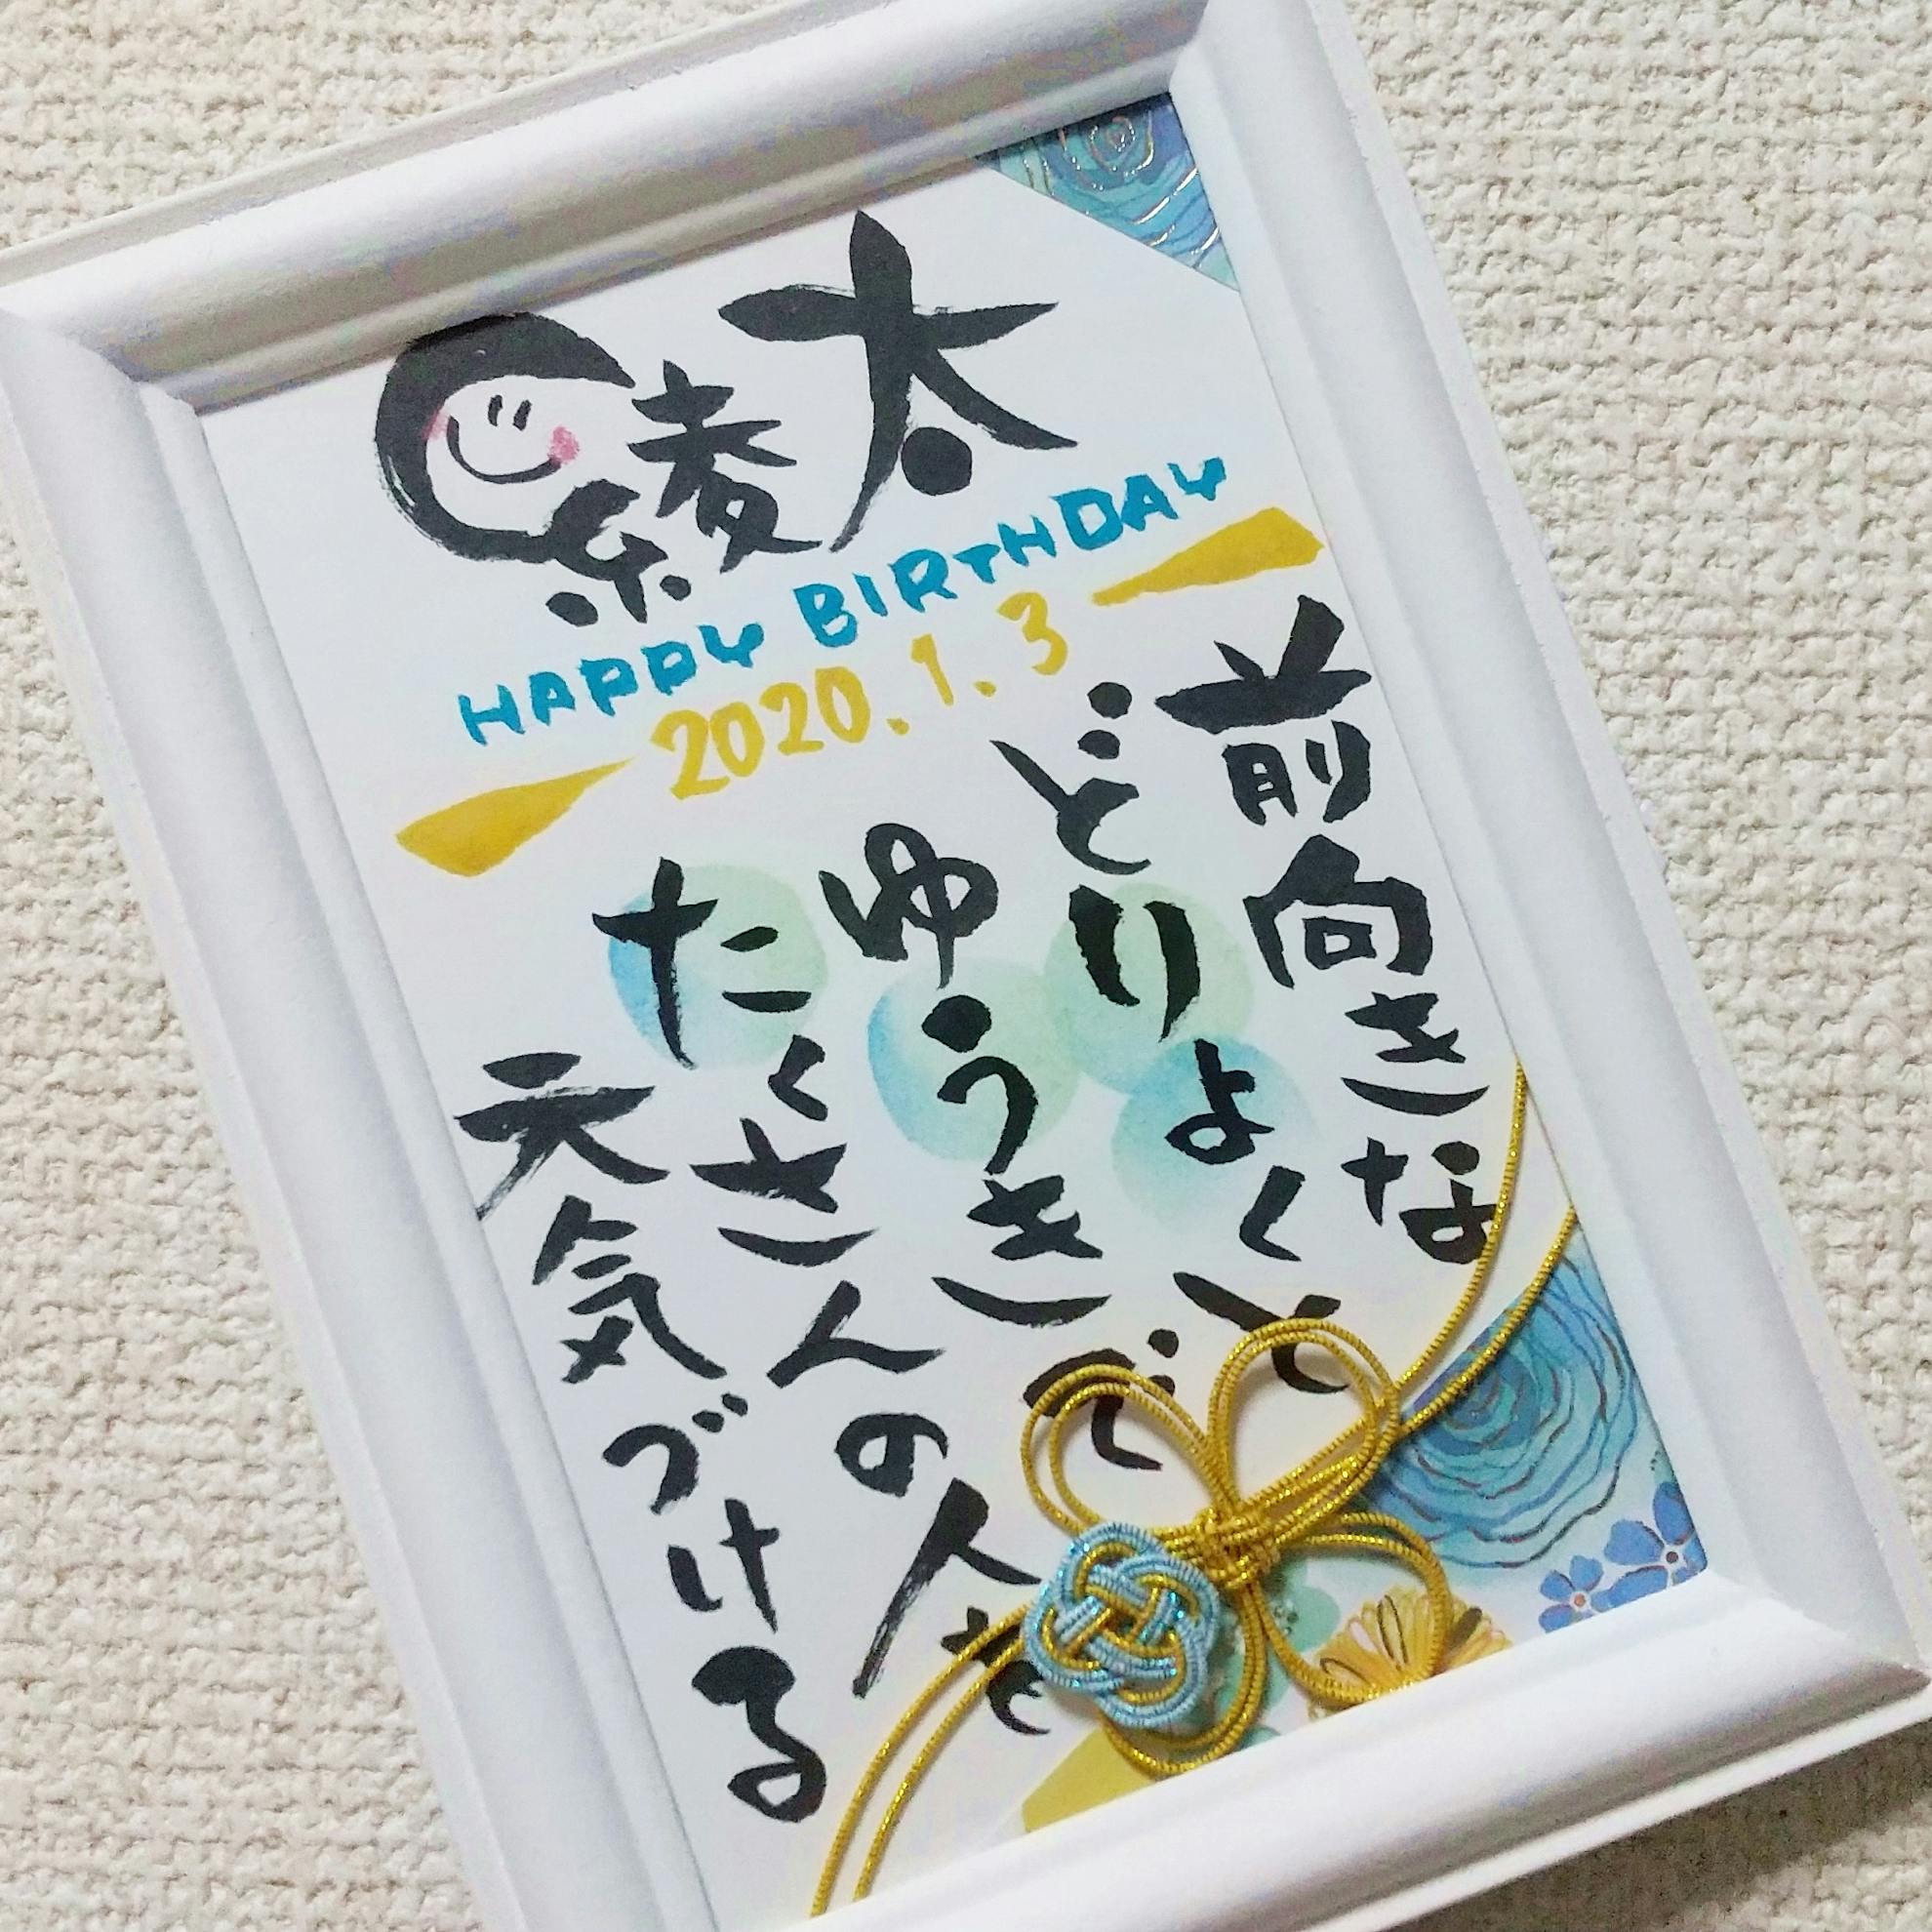 綾太
HAPPY BIRTHDAY
2020.1.3
前向きな
どりょくと
ゆうきで
たくさんの人を
元気づける